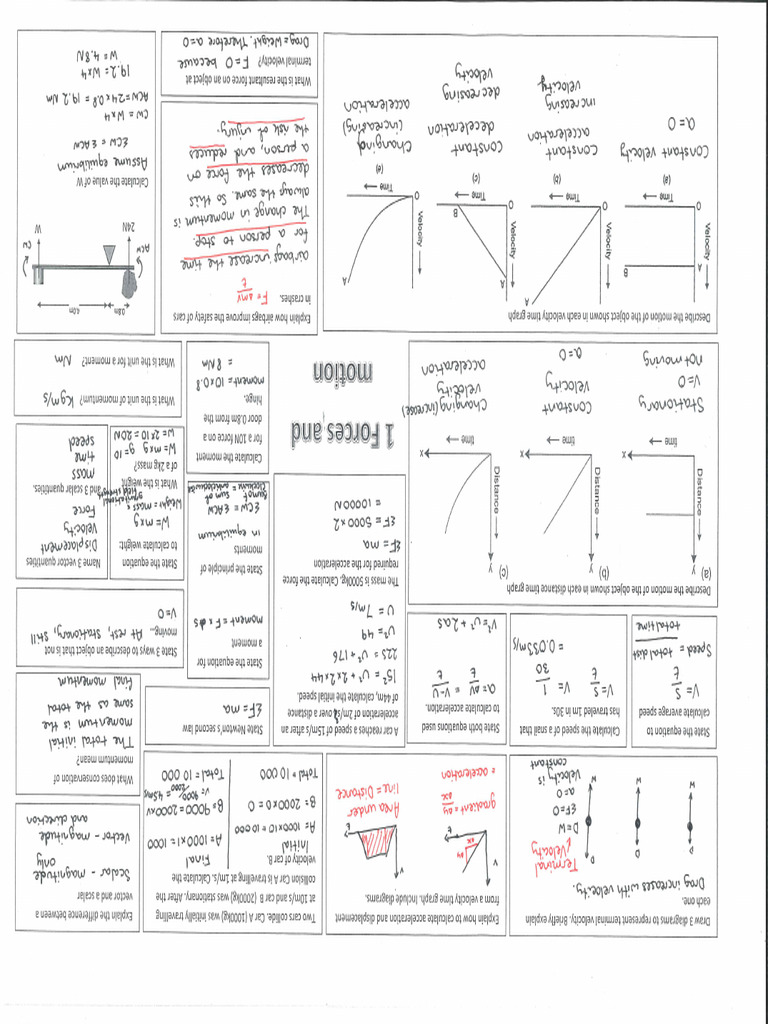 Draw 3 diagrams to represent terminal velocity. Briefly explain
each one.
Drag increases with velocity.
Terminal
Velocity
D
D
D
W
W
W
D=W
ΣF=0
a=0
Velocity is
constant
Explain how to calculate acceleration and displacement
from a velocity time graph. Include diagrams.
v
t
Δy
Δx
gradient = Δy
Δx
= acceleration
v
t
Area under
line = Distance
Two cars collide. Car A (1000kg) was initially travelling
at 10m/s and car B (2000kg) was stationary. After the
collision car A is travelling at 1m/s. Calculate the
velocity of car B.
Initial
A= 1000x10 = 10 000
B= 2000x0 = 0
Total = 10 000
Final
A= 1000x1 = 1000
B= 9000=2000xv
v= 9000/2000 = 4.5m/s
Total = 10 000
Explain the difference between a
vector and a scalar
Scalar - magnitude
only
Vector - magnitude
and direction
State the equation to
calculate average speed
V= S
t
Speed = total dist
total time
Calculate the speed of a snail that
has traveled 1m in 30s.
V= S
t
V= 1
30
= 0.033m/s
State both equations used
to calculate acceleration.
a= Δv
t
= v-u
t
v²=u²+2as
A car reaches a speed of 15m/s after an
acceleration of 2m/s² over a distance
of 44m, calculate the initial speed.
15² = u² + 2x2x44
225 = u² + 176
u² = 49
u = 7m/s
State Newton's second law
ΣF=ma
What does conservation of
momentum mean?
The total initial
momentum is the
same as the total
final momentum
Describe the motion of the object shown in each distance time graph
(a)
Y
Distance
time
X
Stationary
V=0
not moving
(b)
Y
Distance
time
X
Constant
velocity
a=0
(c)
Distance
time
X
Changing (increase)
velocity
acceleration
The mass is 5000kg. Calculate the force
required for the acceleration
ΣF = ma
ΣF = 5000x2
= 10000N
State the equation for
a moment
moment = F x ds
State 3 ways to describe an object that is not
moving... At rest, stationary, still
V=0
State the principle of
moments
in equilibrium
ΣCW = ΣACW
State the equation
to calculate weight:
W=mxg
Weight = mass x
gravitational
field strength
What is the weight
of a 2kg mass?
W=mxg g=10
W=2x10=20N
Name 3 vector quantities
Displacement
Velocity
Force
and 3 scalar quantities.
mass
time
speed
1 Forces and
motion
Calculate the moment
for a 10N force on a
door 0.8m from the
hinge.
moment = 10x0.8
= 8Nm
What is the unit of momentum? Kgm/s
What is the unit for a moment? Nm
Describe the motion of the object shown in each velocity time graph
Velocity
A
B
O
Time
(a)
Constant velocity
a=0
Velocity
A
O
Time
(b)
Constant
acceleration
increasing
velocity
Velocity
A
B
O
Time
(c)
Constant
deceleration
decreasing
velocity
Velocity
A
O
Time
(e)
Changing
(increasing)
acceleration
Explain how airbags improve the safety of cars
in crashes. F= Δmv
t
airbags increase the time
for a person to stop.
The change in momentum is
always the same. So this
decreases the force on
a person, and reduces
the risk of injury.
What is the resultant force on an object at
terminal velocity? F=0 because
Drag=Weight. Therefore a=0
0.8m
4.0m
ACW
CW
24N
W
Calculate the value of W
Assume equilibrium
ΣCW = ΣACW
CW = Wx4
ACW=24x0.8 = 19.2 Nm
19.2 = Wx4
W= 4.8N